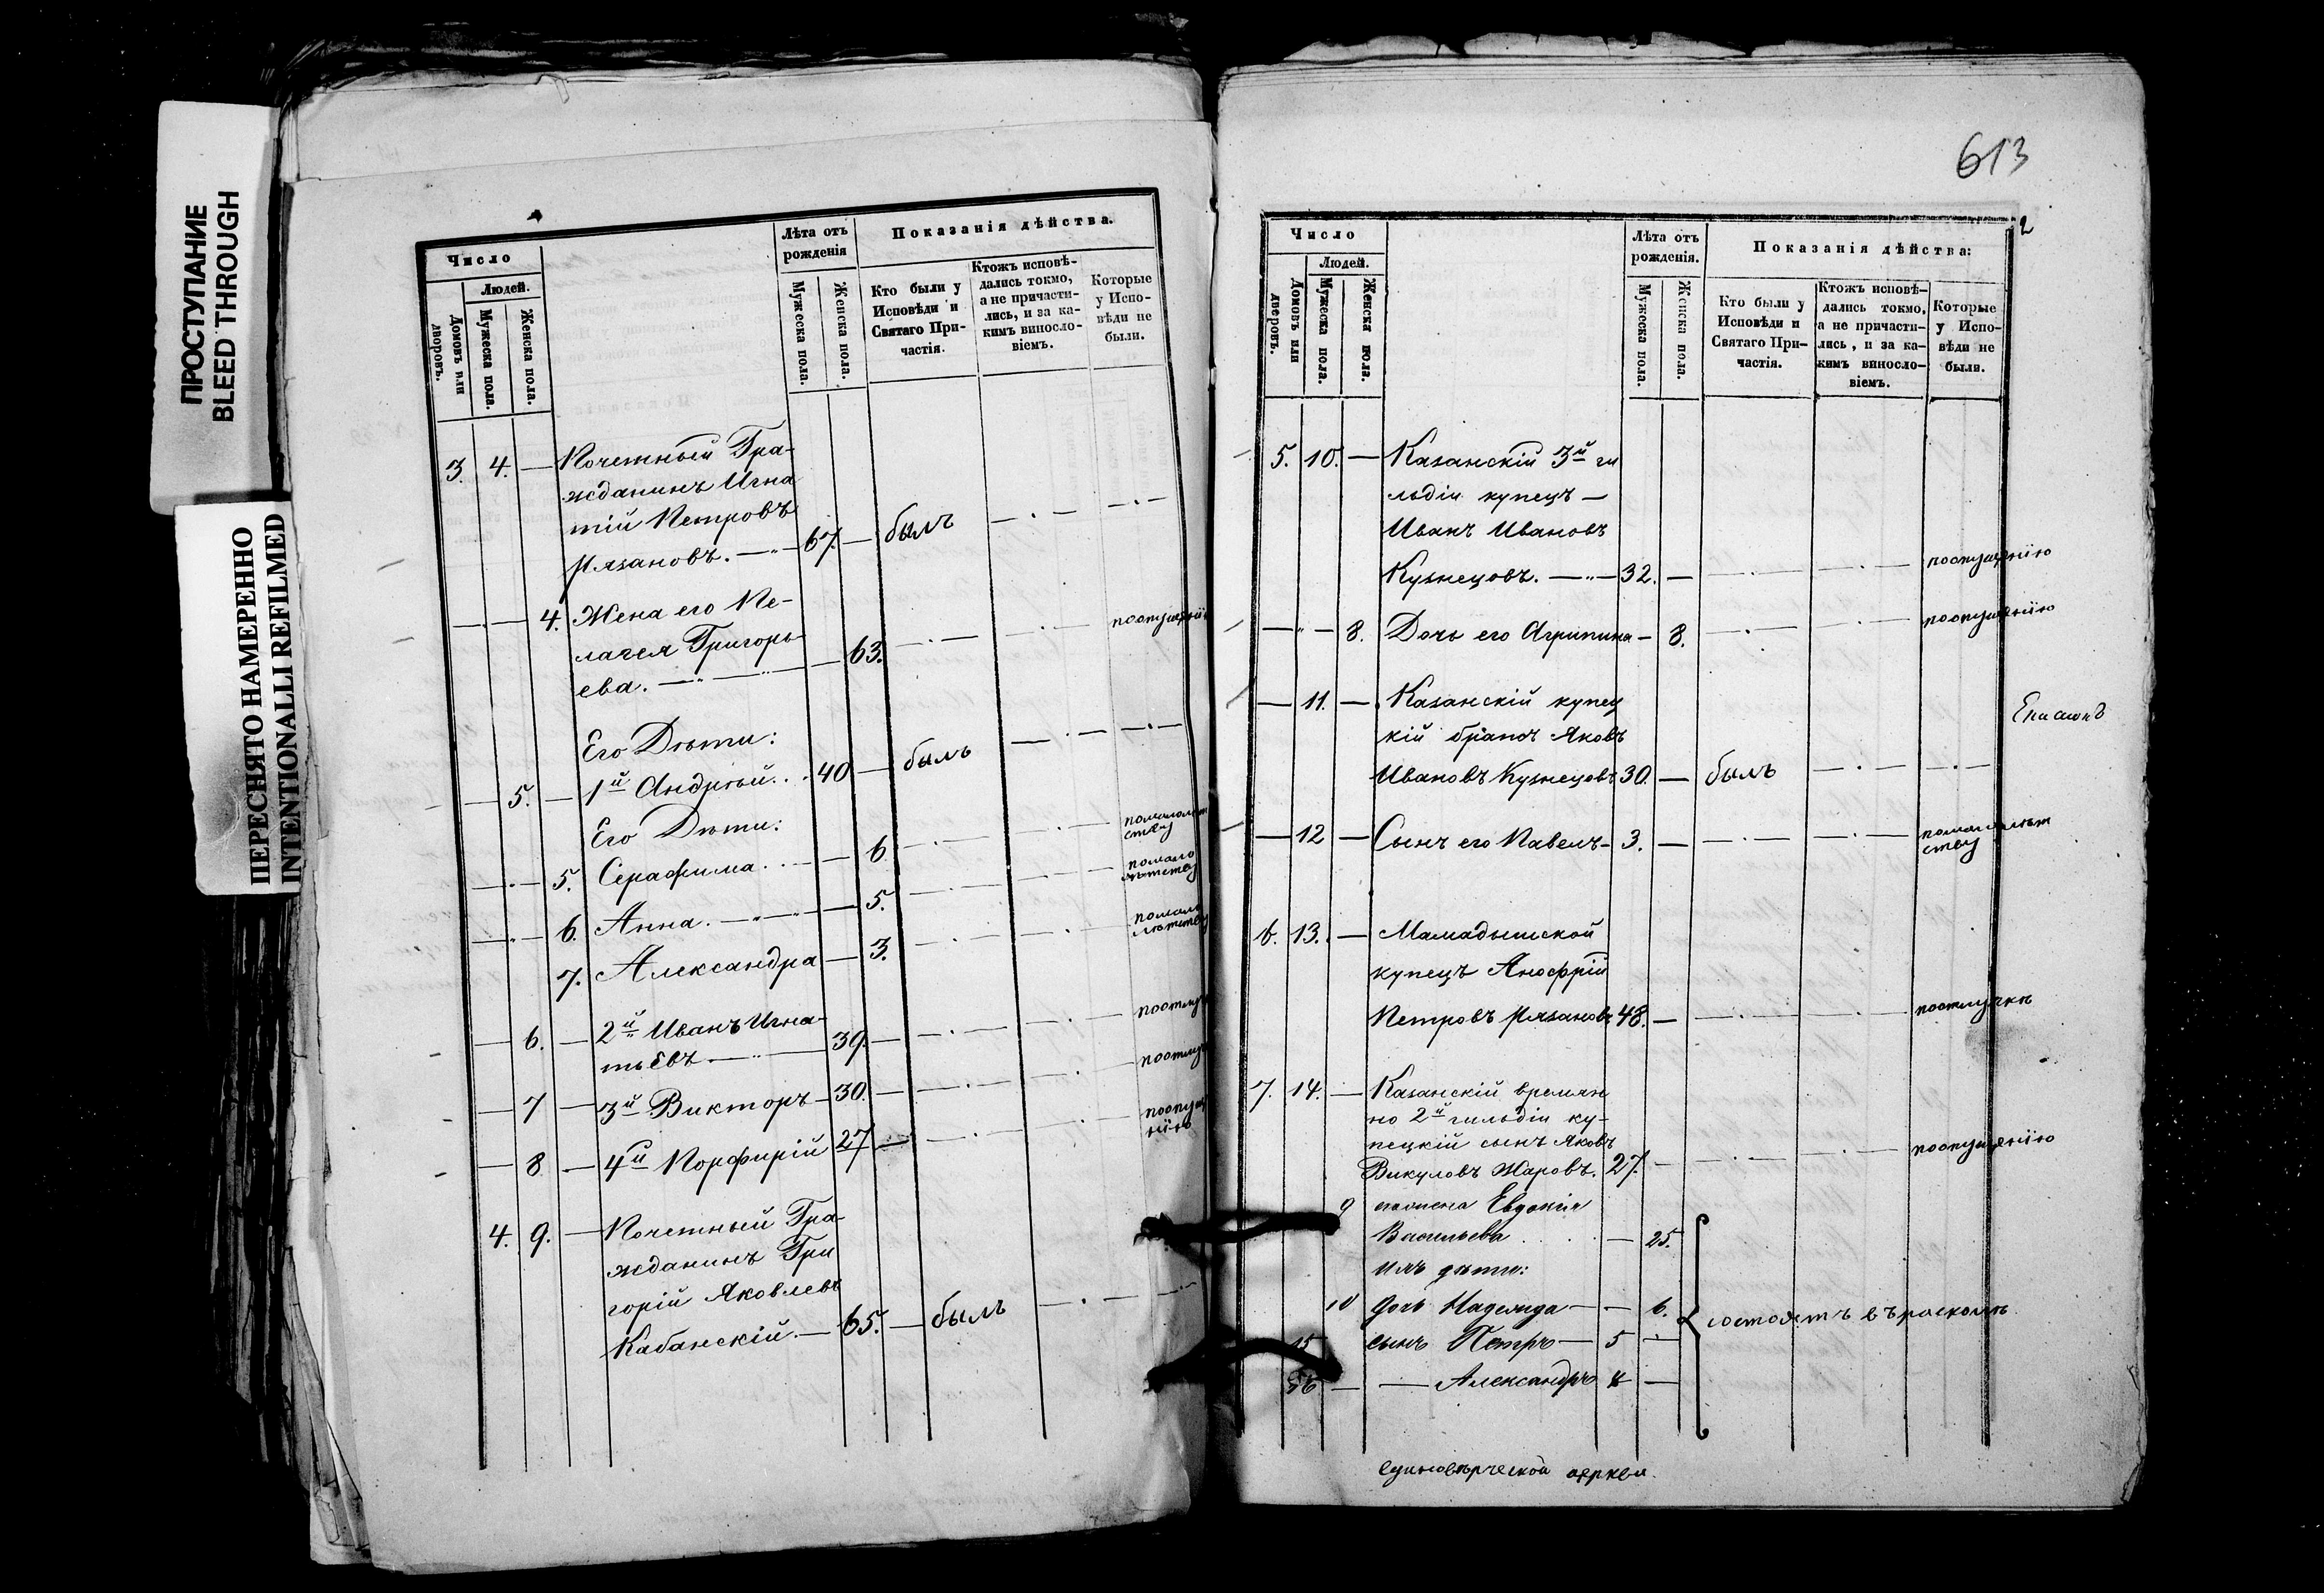 ПРОСТУПАНИЕ
BLEED THROUGH
ПЕРЕСНЯТО НАМЕРЕННО
INTENTIONALLI REFILMED
Число
Людей.
Домовъ или дворовъ.
Мужеска пола.
Женска пола.
Лѣта отъ рожденія
Мужеска пола.
Женска пола.
Показанія дѣйства.
Кто были у Исповѣди и Святаго Причастія.
Ктожъ исповѣдались токмо, а не причастились, и за какимъ винословіемъ.
Которые у Исповѣди не были.
3. 4. — Почетный Гра-
жданинъ Игна
тій Петровъ
Рязановъ. — 67. — былъ
4. Жена его Пе-
лагея Григорь-
ева. — 63. поопущенію
Его Дѣти:
5. — 1й Андрей . . 40 — былъ
Его Дѣти:
5. Серафима . — 6 помалолѣт
ству
6. Анна. — 5. помало
лѣтству
7. Александра — 3. помало
лѣтству
6. — 2й Иванъ Игна-
тьевъ — 39. — поотлу
7 — 3й Викторъ — 30. — поотлу
8 — 4й Порфирій 27 — поопущ
нію
4. 9. — Почетный Гра-
жданинъ Гри
горій Яковлевъ
Кабанскій. — 65. — былъ
613
2
Число
Людей.
Домовъ или дворовъ.
Мужеска пола.
Женска пола.
Лѣта отъ рожденія.
Мужеска пола.
Женска пола.
Показанія дѣйства:
Кто были у Исповѣди и Святаго Причастія.
Ктожъ исповѣдались токмо, а не причастились, и за какимъ винословіемъ.
Которые у Исповѣди не были.
5. 10. — Казанскій 3й ги
льдіи купецъ —
Иванъ Ивановъ
Кузнецовъ. — 32. — поопущенію
8. Дочь его Агрипина — 8. поопущенію
11. — Казанскій купец
кій братъ Яковъ
Ивановъ Кузнецовъ 30. — былъ
12 — Сынъ его Павелъ — 3. — помалолѣт
ству
6. 13. — Мамадышской
купецъ Анофрій
Петровъ Рязановъ 48. — поотлучкѣ
7. 14. — Казанскій времян
но 2й гильдіи ку-
пецкій сынъ Яковъ
Викуловъ Жаровъ. 27. — поопущенію
9 Евдокія
Васильева . . . — 25.
Ихъ дѣти:
10 дочь Надежда — — 6.
состоятъ въ расколѣ
15 сынъ Петръ — 5 —
16 — Александръ 4 —
единовѣрческой церкви.